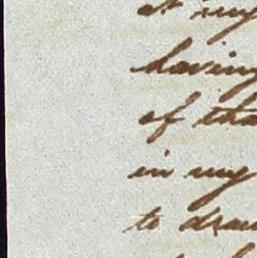 at my
having
of tha
in my
to draw